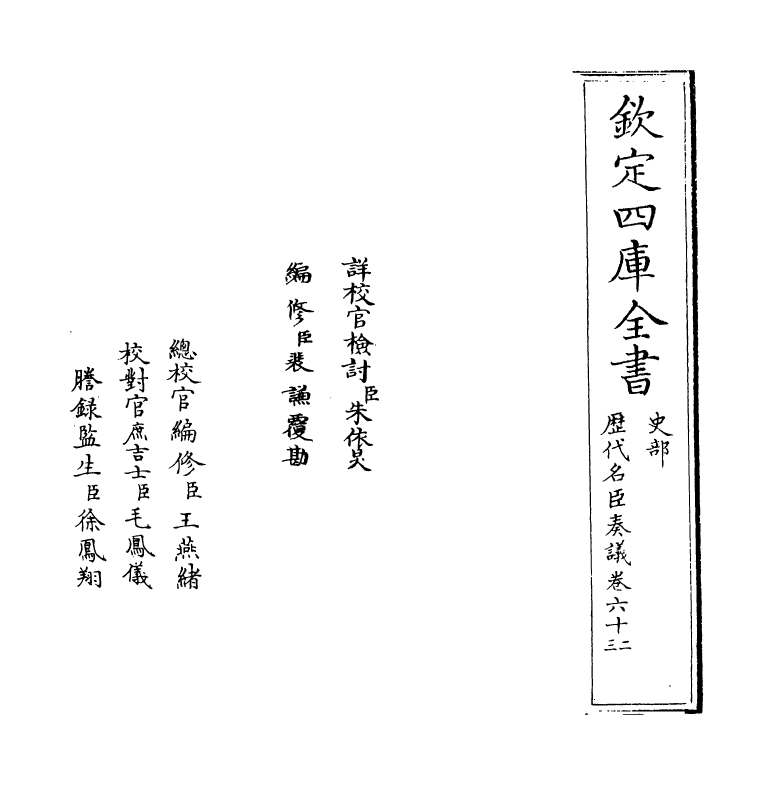 欽定四庫全書
史部
歴代名臣奏議卷六十二三
詳校官檢討臣朱依炅
編修臣裴謙覆勘
總校官編修臣王燕緒
校對官庶吉士臣毛鳳儀
謄録監生臣徐鳳翔